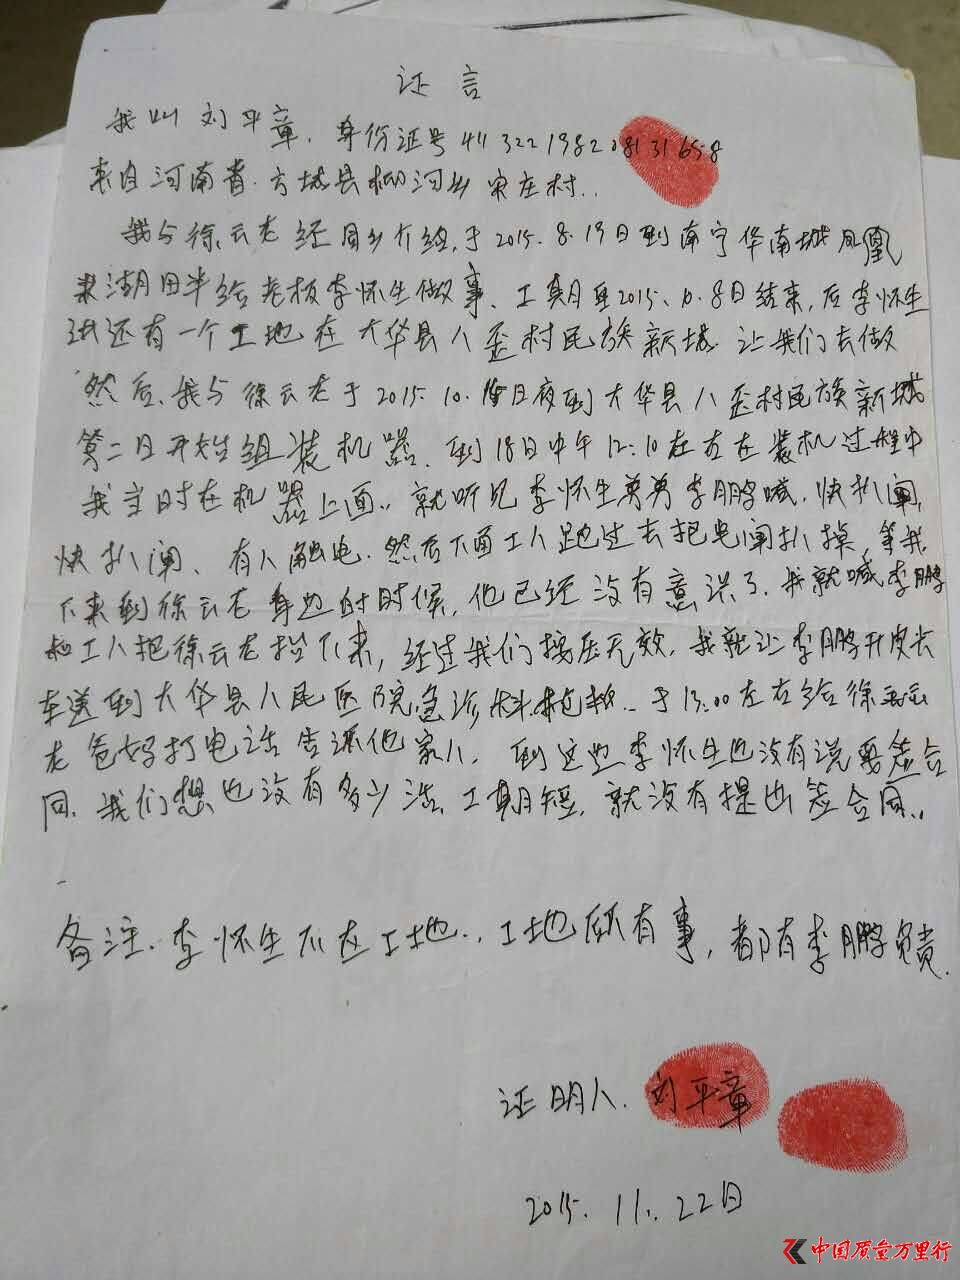 证言
我叫刘平章.身份证号411322198208131658
来自河南省.方城县柳河乡宋庄村..
我与徐云龙经同乡介绍,于2015.8.19日到南宁华南城凤凰
湖田半给老板李怀生做事、工期至2015.10.8日结束,后李怀生
说还有一个工地在大华县八歪村民族新城.让我们去做
然后,我与徐云龙于2015.10.15日夜到大华县八歪村民族新城
第二日开始组装机器.到18日中午12:10左右在装机过程中
我当时在机器上面..就听见李怀生弟弟李鹏喊.快扒阐,
快扒阐、有人触电.然后下面工人跑过去把电阐扒掉,等我
下来到徐云龙身边的时候,他已经没有意识了.我就喊李鹏
和工人把徐云龙抬下来,经过我们按压无效,我就让李鹏开皮卡
车送到大华县人民医院急诊科抢救..于13:00左右给徐云
龙爸妈打电话告诉他家人.到这边李怀生也没有说要签合
同.我们想也没有多少活.工期短.就没有提出签合同..
备注.李怀生不在工地.,工地所有事,都有李鹏负责.
证明人.刘平章
2015.11.22日
中国质量万里行